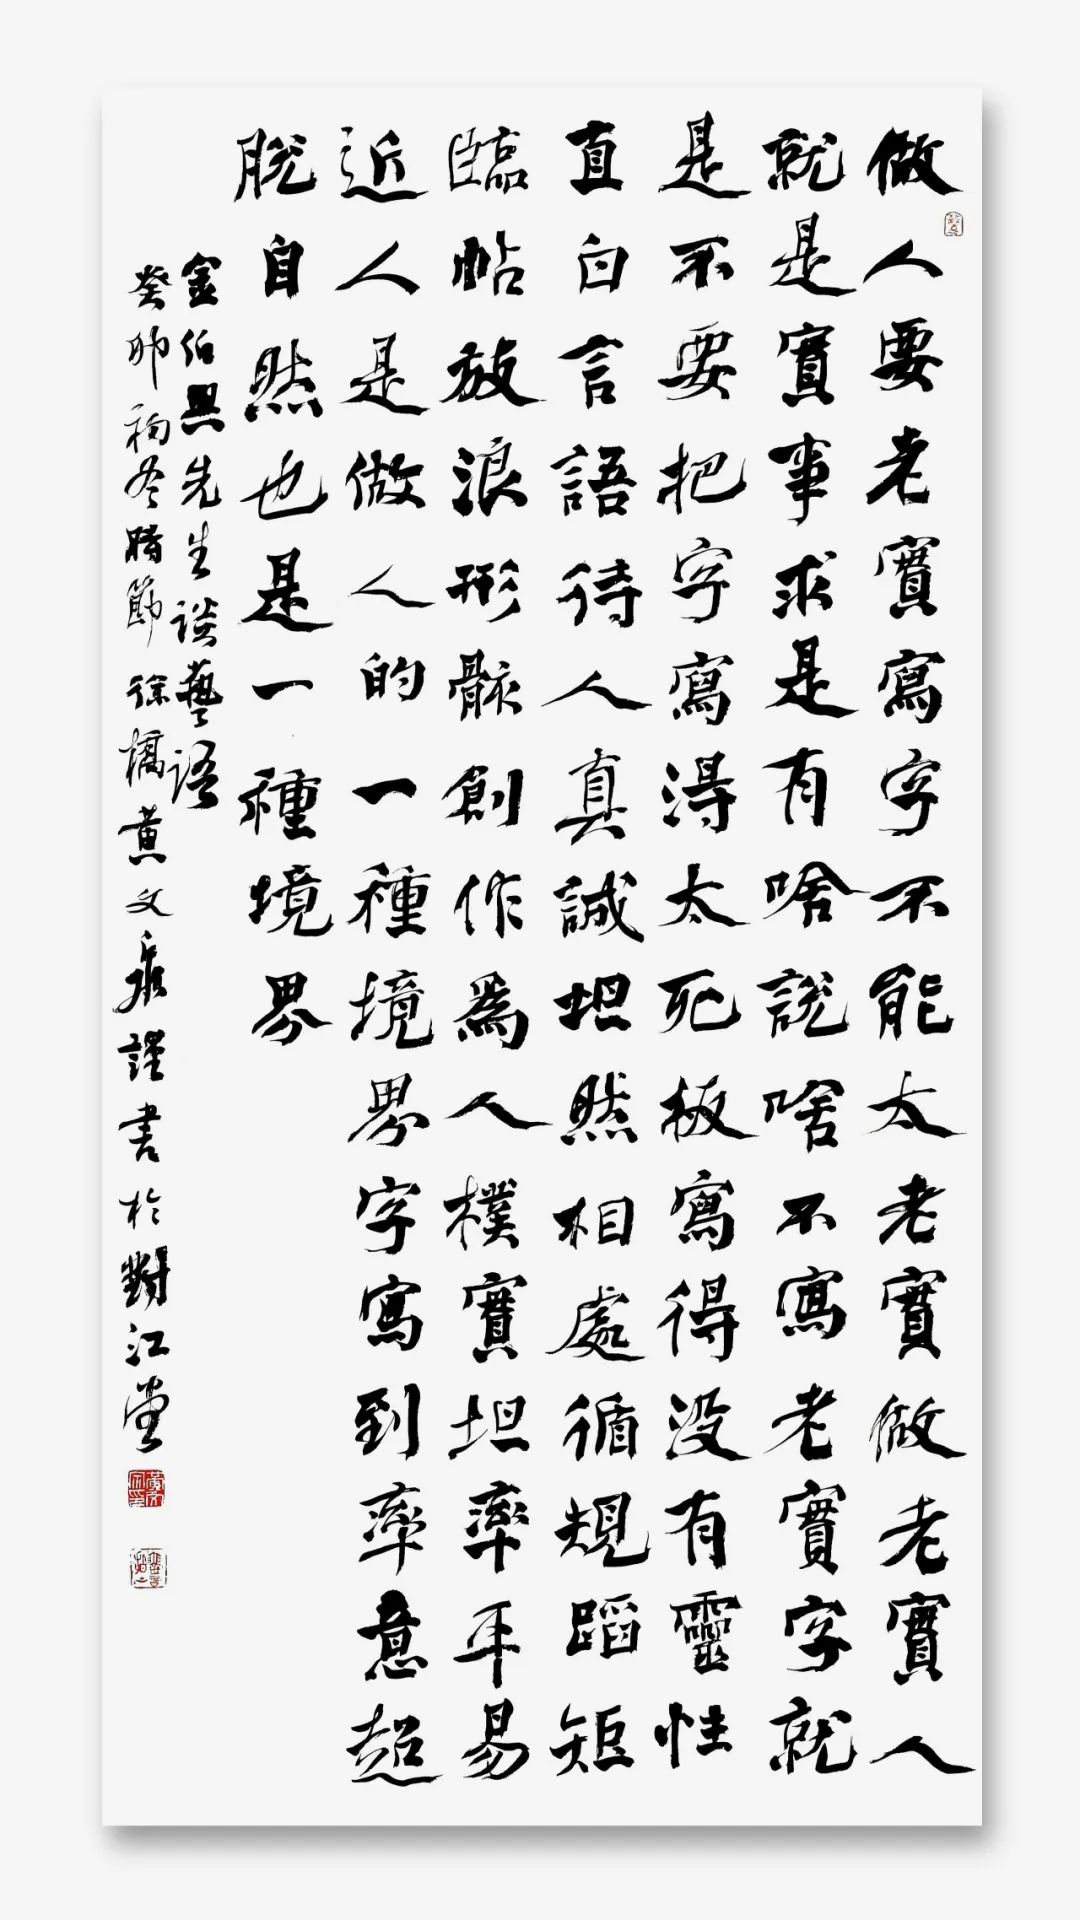 做人要老實寫字不能太老實做老實人
就是實事求是有啥說啥不寫老實字就
是不要把字寫得太死板寫得没有靈性
直白言語待人真誠坦然相處循規蹈矩
臨帖放浪形骸創作爲人樸實坦率平易
近人是做人的一種境界字寫到率意超
脱自然也是一種境界
金伯興先生談藝語
癸卯初冬時節徐橋黄文謹書於對江堂